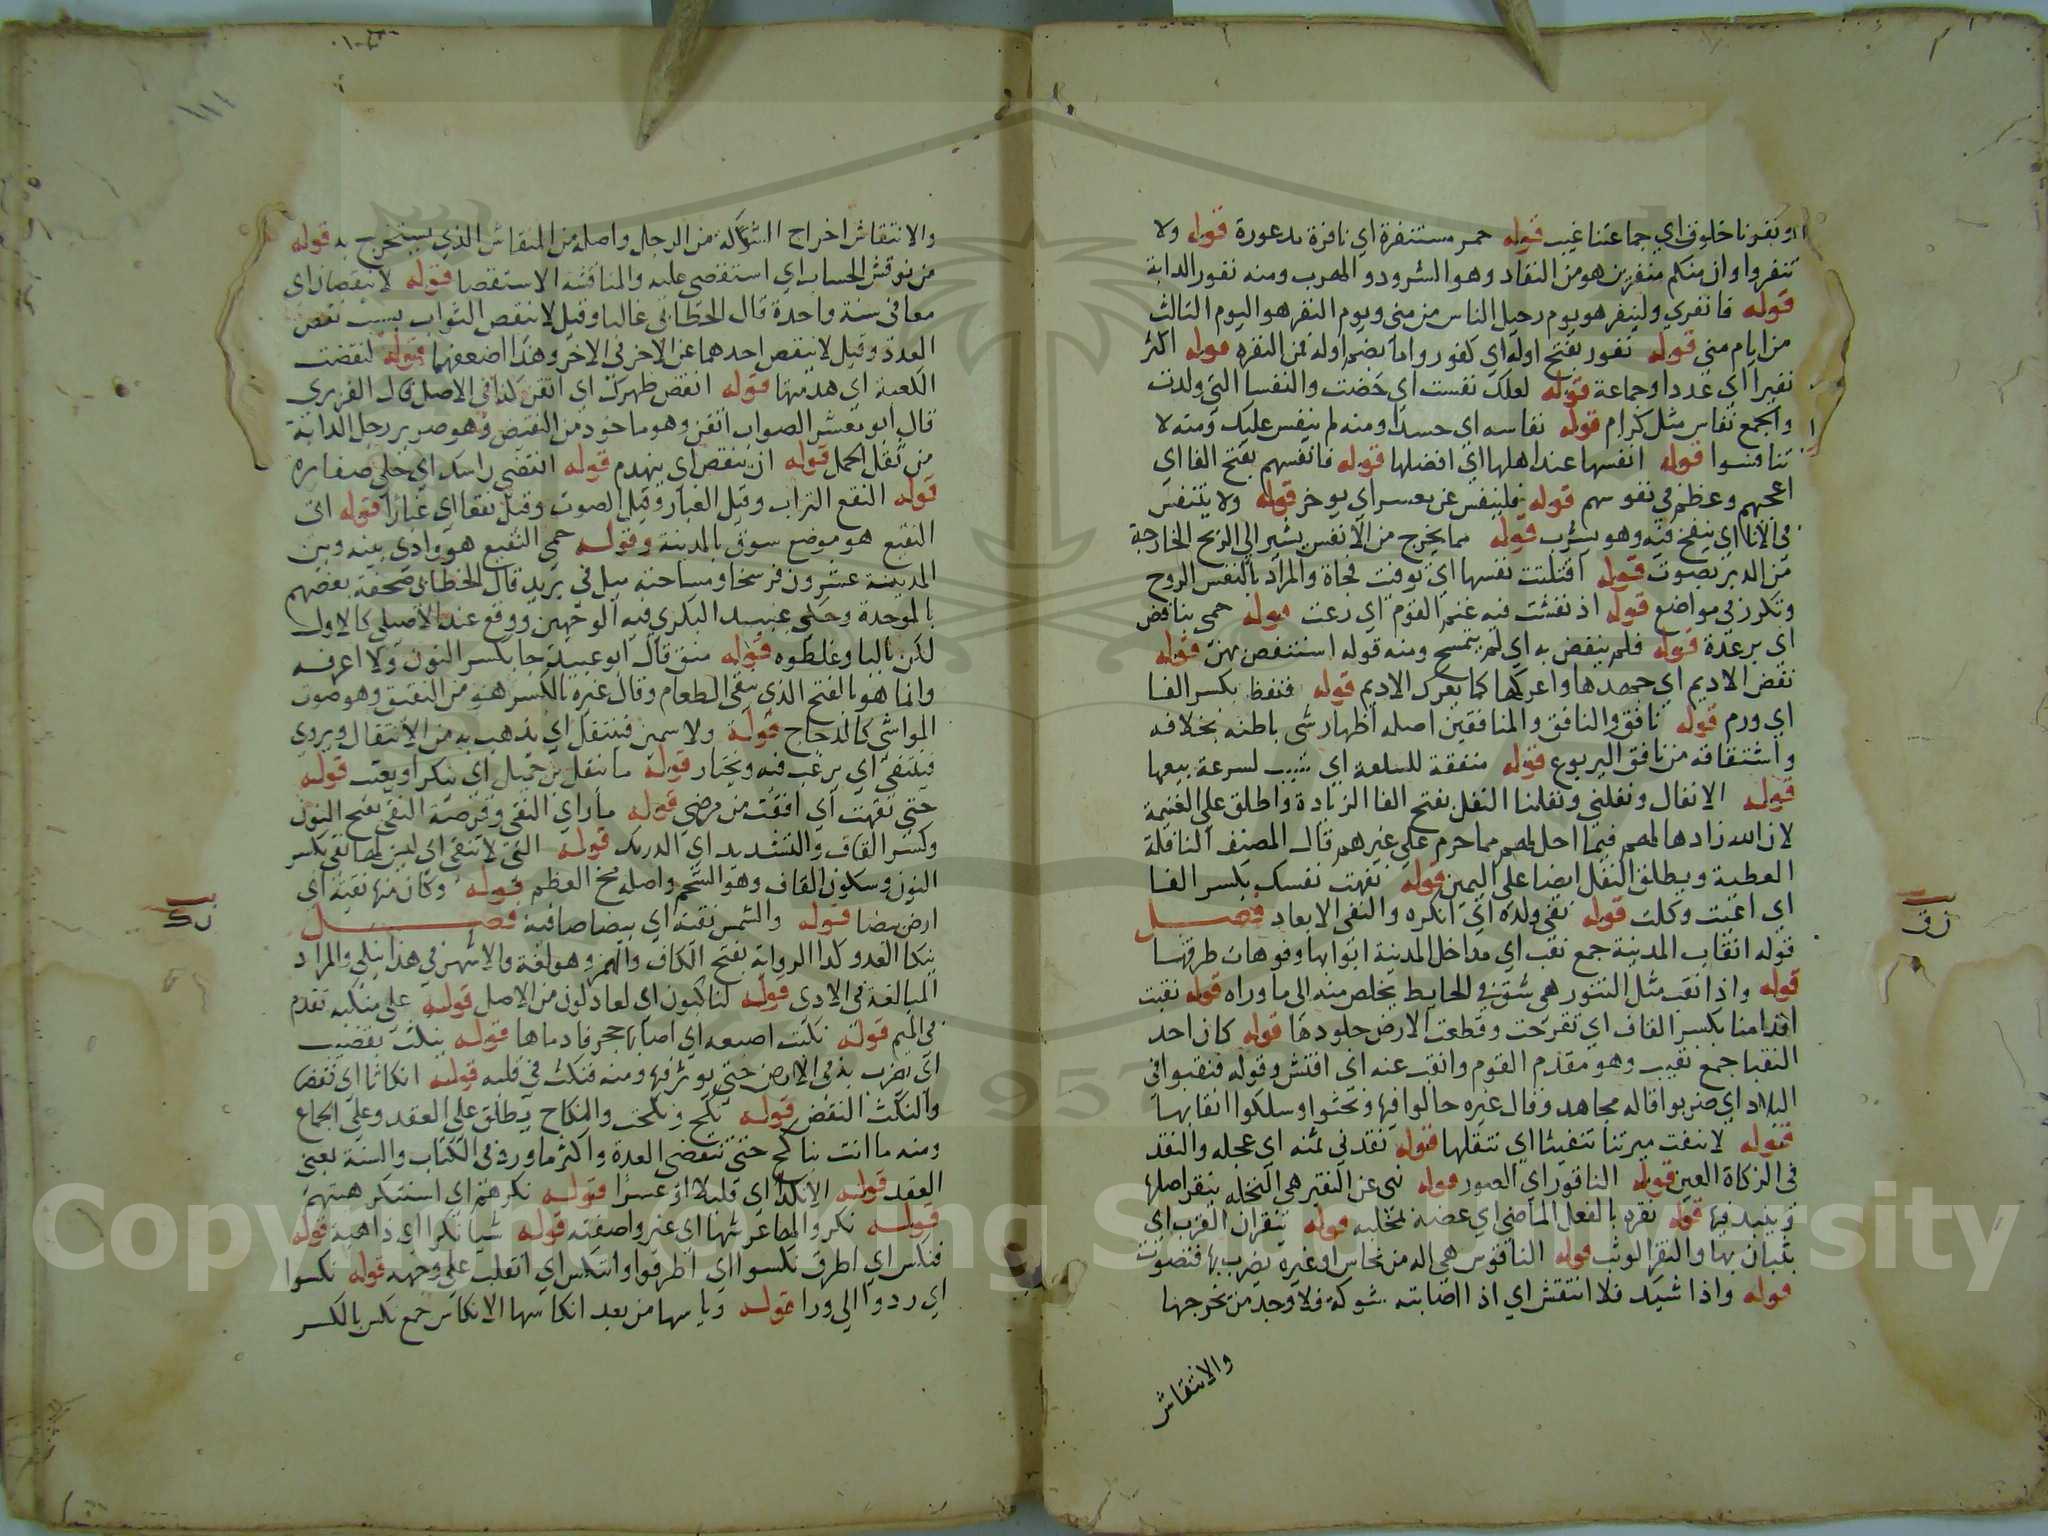 ونفرنا خلوف اي جماعتنا غيب قوله حمر مستنفرة اي نافرة مذعورة قوله ولا
تنفروا وان منكم منفرين هو من النفار وهو الشرود والهرب ومنه نفور الدابة
قوله فانفري ولينفر هو يوم رحيل الناس من منى ويوم النفر هو اليوم الثالث
من ايام منى قوله نفور بفتح اوله اي كفور واما بضم اوله فمن النفره قوله اكثر
نفيرا اي عددا وجماعة قوله لعلك نفست اي حضت والنفسا التي ولدت
والجمع نفاس مثل كرام قوله نفاسه اي حسدا ومنه لم ينفس عليك ومنه لا
تنافسوا قوله انفسها عند اهلها اي افضلها قوله فانفسهم بفتح الفا اي
اعجبهم وعظم في نفوسهم قوله فلينفس عن معسر اي يوخر قوله ولا يتنفس
في الانا اي ينفخ فيه وهو يشرب قوله مما يخرج من الانفس يشير الي الريح الخارجة
من الدبر بصوت قوله افتلتت نفسها اي توفت فجاة والمراد بالنفس الروح
وتكرر في مواضع قوله اذ نفشت فيه غنم القوم اي رعت قوله حمى بنافض
اي برعدة قوله فلم ينفض به اي لم يتمسح ومنه قوله استنفض بهن قوله
نفض الاديم اي جهدها واعركها كما يعرك الاديم قوله فنفط بكسر الفا
اي ورم قوله نافق والنافق والمنافقين اصله اظهار شي باطنه بخلافه
واشتقاقه من نافق اليربوع قوله منفقة للسلعة اي سبب لسرعة بيعها
قوله الانفال ونفلني ونفلنا النفل بفتح الفا الزيادة واطلق علي الغنيمة
لان الله زادها لهم فيما احل لهم مما حرم علي غيرهم قال المصنف النافلة
العطية ويطلق النفل ايضا علي اليمين قوله نفهت نفسك بكسر الفا
اي اعيت وكلت قوله نفى ولده اي انكره والنفى الابعاد فصل
قوله انقاب المدينة جمع نقب اي مداخل المدينة ابوابها وفوهات طرقها
قوله واذا نقب مثل التنور هي شق في الحايط يخلص منه الى ما وراه قوله نقبت
اقدامنا بكسر القاف اي تقرحت وقطعت الارض جلودها قوله كان احد
النقبا جمع نقيب وهو مقدم القوم وانقب عنه اي افتش وقوله فنقبوا في
البلاد اي ضربوا قاله مجاهد وقال غيره جالوا فيها وبحثوا وسلكوا انقابها
قوله لا تنقث ميرتنا تنقيثا اي تنقلها قوله نقدني ثمنه اي عجله والنقد
في الزكاة العين قوله الناقور اي الصور قوله نهى عن النقير هي النخله ينقر اصلها
وينبذ فيها قوله نقره بالفعل الماضي اي عضه بمخلبه قوله تنقزان القرب اي
يثبان بها والنقز الوثب قوله الناقوس هي اله من نحاس او غيره يضرب بها فتصوت
قوله واذا شيك فلا انتقش اي اذا اصابته شوكة فلا وجد من يخرجها
والانتقاش
نق
والانتقاش اخراج الشوكة من الرجل واصله من المنقاش الذي يستخرج به قوله
من نوقش الحساب اي استقصى عليه والمناقشه الاستقصا قوله لا ينقصان اي
معا في سنة واحدة قال الخطابي غالبا وقيل لا ينقص الثواب بسبب نقص
العدة وقيل لا ينقص احدهما عن الاخر في الاجر وهذا اضعفها قوله لنقضت
الكعبة اي هدمتها قوله انقض ظهرك اي اتقن كذا في الاصل قال الفربري
قال ابو معشر الصواب اثقل وهو ماخوذ من النقيض وهو صرير رحل الدابة
من ثقل الحمل قوله ان ينقض اي ينهدم قوله انقضي راسك اي حلي ضفايره
قوله النقع التراب وقيل الغبار وقيل الصوت وقيل نقعا اي غبارا قوله اتى
النقيع هو موضع سوق بالمدينة وقوله حمى النقيع هو وادي بينه وبين
المدينة عشرون فرسخا ومساحته ميل في بريد قال الخطابي صحفه بعضهم
بالموحدة وحكى عبيد البكري فيه الوجهين ووقع عند الاصيلي كالاول
لكن بالبا وغلطوه قوله منق قال ابو عبيد جا بكسر النون ولا اعرفه
وانما هو بالفتح الذي ينقي الطعام وقال غيره بالكسر هو من النقيق وهو صوت
المواشي كالدجاج قوله ولا سمين فينتقل اي يذهب به من الانتقال ويروى
فينتقى اي يرغب فيه ويختار قوله ما ينقم بن جميل اي ينكر او يعيب قوله
حتى نقهت اي افقت من مرضي قوله ما راي النقي وقرصة النقي بفتح النون
وكسر القاف والتشديد اي الدرمك قوله التي لا تنقي اي ليس لها نقي بكسر
النون وسكون القاف وهو الشحم واصله مخ العظم قوله وكان منها نقية اي
ارض بيضا قوله والشمس نقية اي بيضا صافية فصل
ينكا العدو كذا الرواية بفتح الكاف والهمز وهو لغة والاشهر في هذا ينكي والمراد
المبالغة في الاذى قوله لناكبون اي لعادلون من الاصل قوله على منكبه تقدم
في الميم قوله نكبت اصبعه اي اصابها حجر فادماها قوله ينكت بقضيب
اي يضرب به في الارض حتى يوثر فيها ومنه فنكت في قلبه قوله انكاثا اي نقضا
والنكث النقض قوله نكح ونكحت والنكاح يطلق علي العقد وعلي الجماع
ومنه ما انت بناكح حتى تنقضي العدة واكثر ما ورد في الكتاب والسنة بمعنى
العقد قوله الا نكدا اي قليلا او عسرا قوله نكرهم اي استنكر هيتهم
قوله نكروا لها عرشها اي غيروا صفته قوله شيا نكرا اي داهية قوله
فنكس اي اطرق نكسوا اي اطرقوا وانتكس اي انقلب علي وجهه قوله نكسوا
اي ردوا الي ورا قوله وياسها من بعد انكاسها الانكاس جمع نكس بالكسر
نك